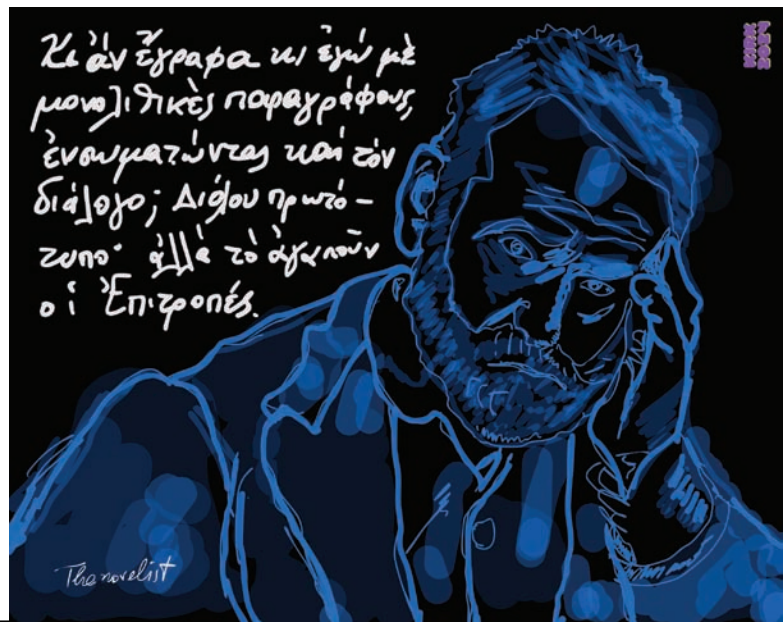 Κι ἀν ἔγραφα κι ἐγώ μὲ
μονολιθικὲς παραγράφους,
ἐνσωματώντας καὶ τόν
διάλογο; Διόλου πρωτό-
τυπο· ἀλλὰ τὸ ἀγαποῦν
οἱ Ἐπιτροπές.
The novelist